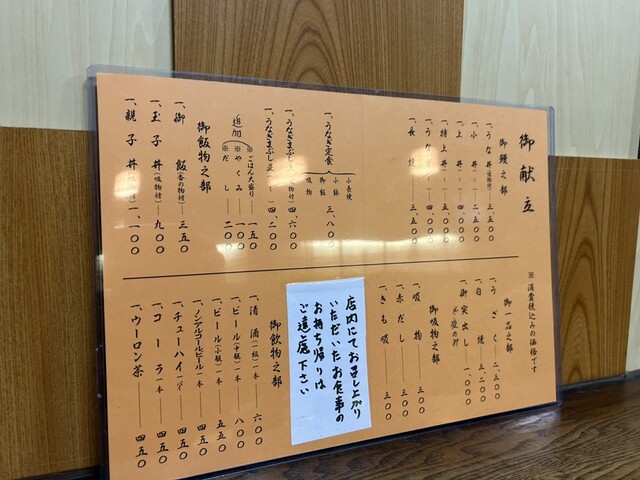 御献立
※消費税込みの価格です
御鰻之部
一、うな丼(吸物付)―三、五〇〇
一、小丼(〃)―二、五〇〇
一、上丼(〃)―四、〇〇〇
一、特上丼(〃)―四、五〇〇
一、うな重(〃)―四、〇〇〇
一、長焼―三、五〇〇
一、うなぎ定食 三、八〇〇
小長焼
小鉢
御飯
吸物
一、うなぎまぶし
(吸物付)四、六〇〇
一、うなぎまぶし並(〃)四、二〇〇
追加
※ごはん大盛り―一五〇
※やくみ―一〇〇
※だし―二〇〇
御飯物之部
一、御飯(香の物付)―三五〇
一、玉子丼(吸物付)―九〇〇
一、親子丼(吸物付)―一、一〇〇
御一品之部
一、うざく―二、三〇〇
一、白焼―三、二〇〇
一、御突出し―一、〇〇〇
御吸物之部
一、吸物―三〇〇
一、赤だし―三〇〇
一、きも吸―三〇〇
店内にてお召し上がり
いただいたお食事の
お持ち帰りは
ご遠慮下さい
御飲物之部
一、清酒(一級)一本―六〇〇
一、ビール(大瓶)一本―八〇〇
一、ビール(小瓶)一本―五五〇
一、ノンアルコールビール一本―四五〇
一、チューハイ―四五〇
一、コーラ一本―四五〇
一、ウーロン茶―四五〇